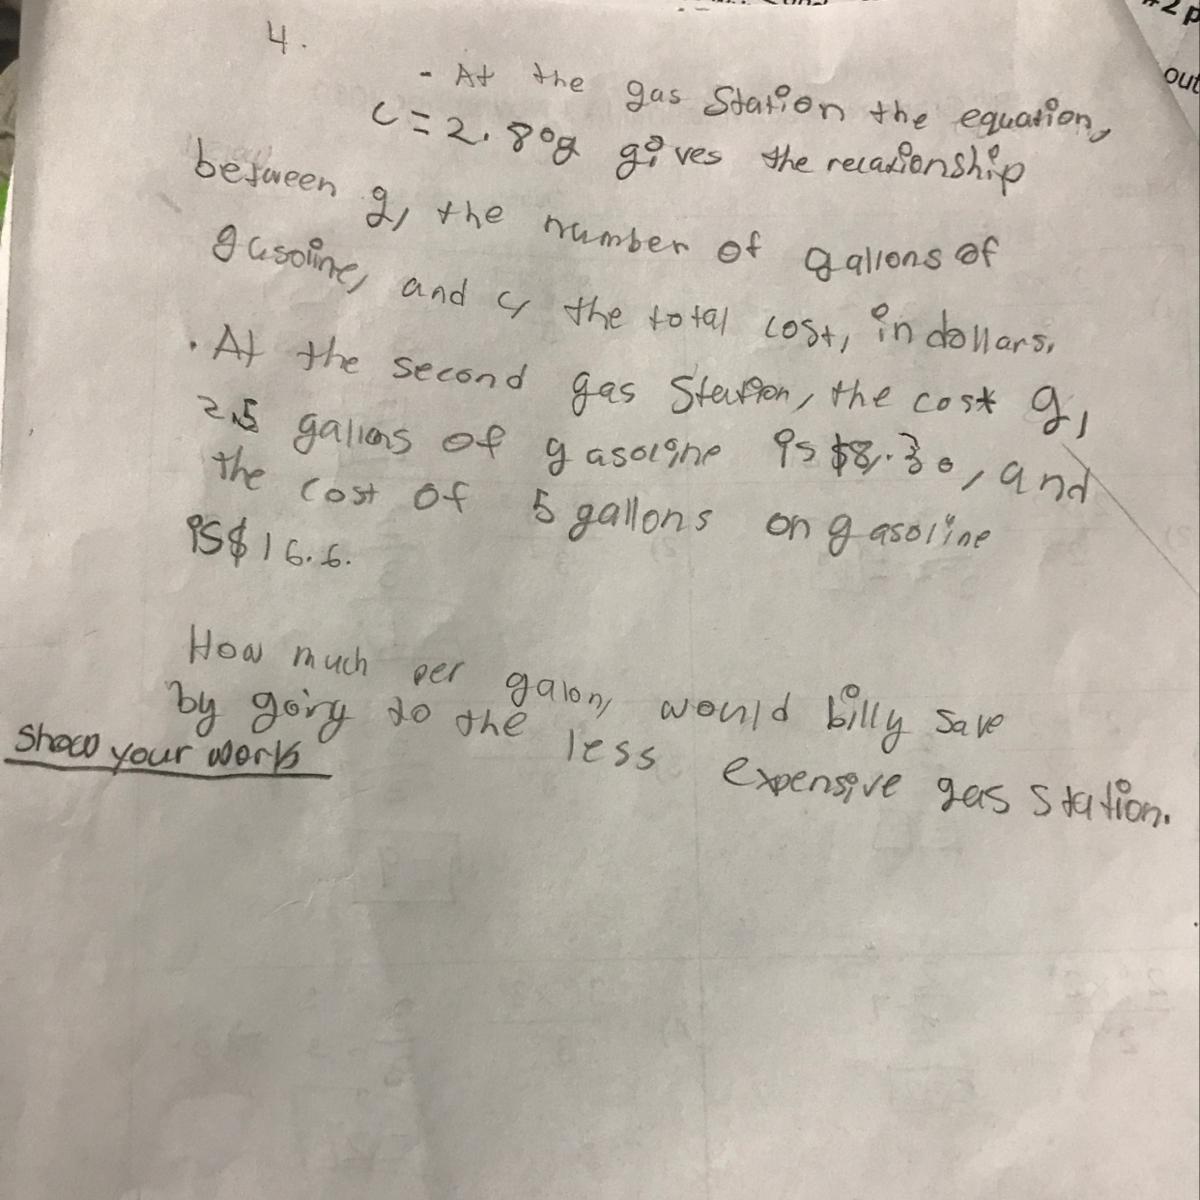 #2 p
out
4.
- At the gas Station the equation,
c=2.80g gives the relationship
between g, the number of gallons of
gasoline, and c, the total cost, in dollars.
. At the second gas Station, the cost g,
2.5 gallons of gasoline is $8.30, and
the cost of 5 gallons on gasoline
is $16.6.
How much per galon, would billy save
by going to the less expensive gas station.
Show your work